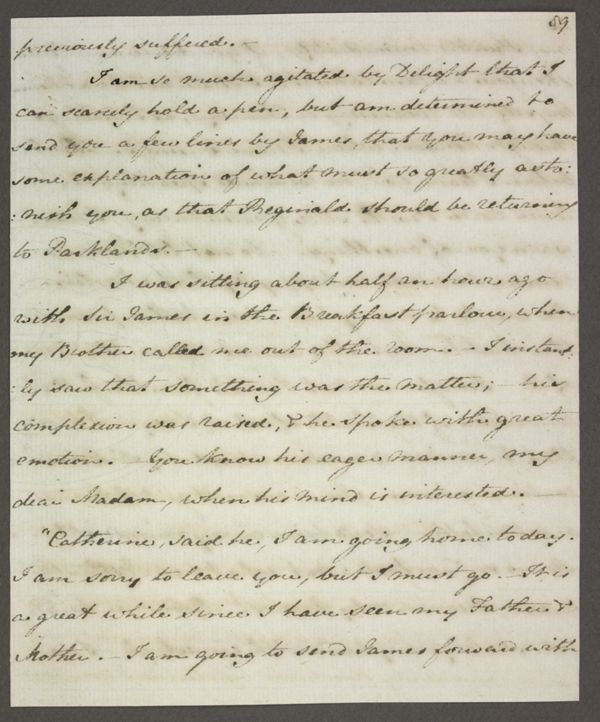 59
previously suffered. —
I am so much agitated by Delight that I
can scarcely hold a pen, but am determined to
send you a few lines by James, that you may have
some explanation of what must so greatly asto:
:nish you, as that Reginald should be returning
to Parklands. —
I was sitting about half an hour ago
with Sir James in the Breakfast parlour, when
my Brother called me out of the room. — I instant:
:ly saw that something was the matter; — his
complexion was raised, & he spoke with great
emotion. — You know his eager manner, my
dear Madam, when his mind is interested. —
"Catherine, said he, I am going home today.
I am sorry to leave you, but I must go. — It is
a great while since I have seen my Father &
Mother. — I am going to send James forward with